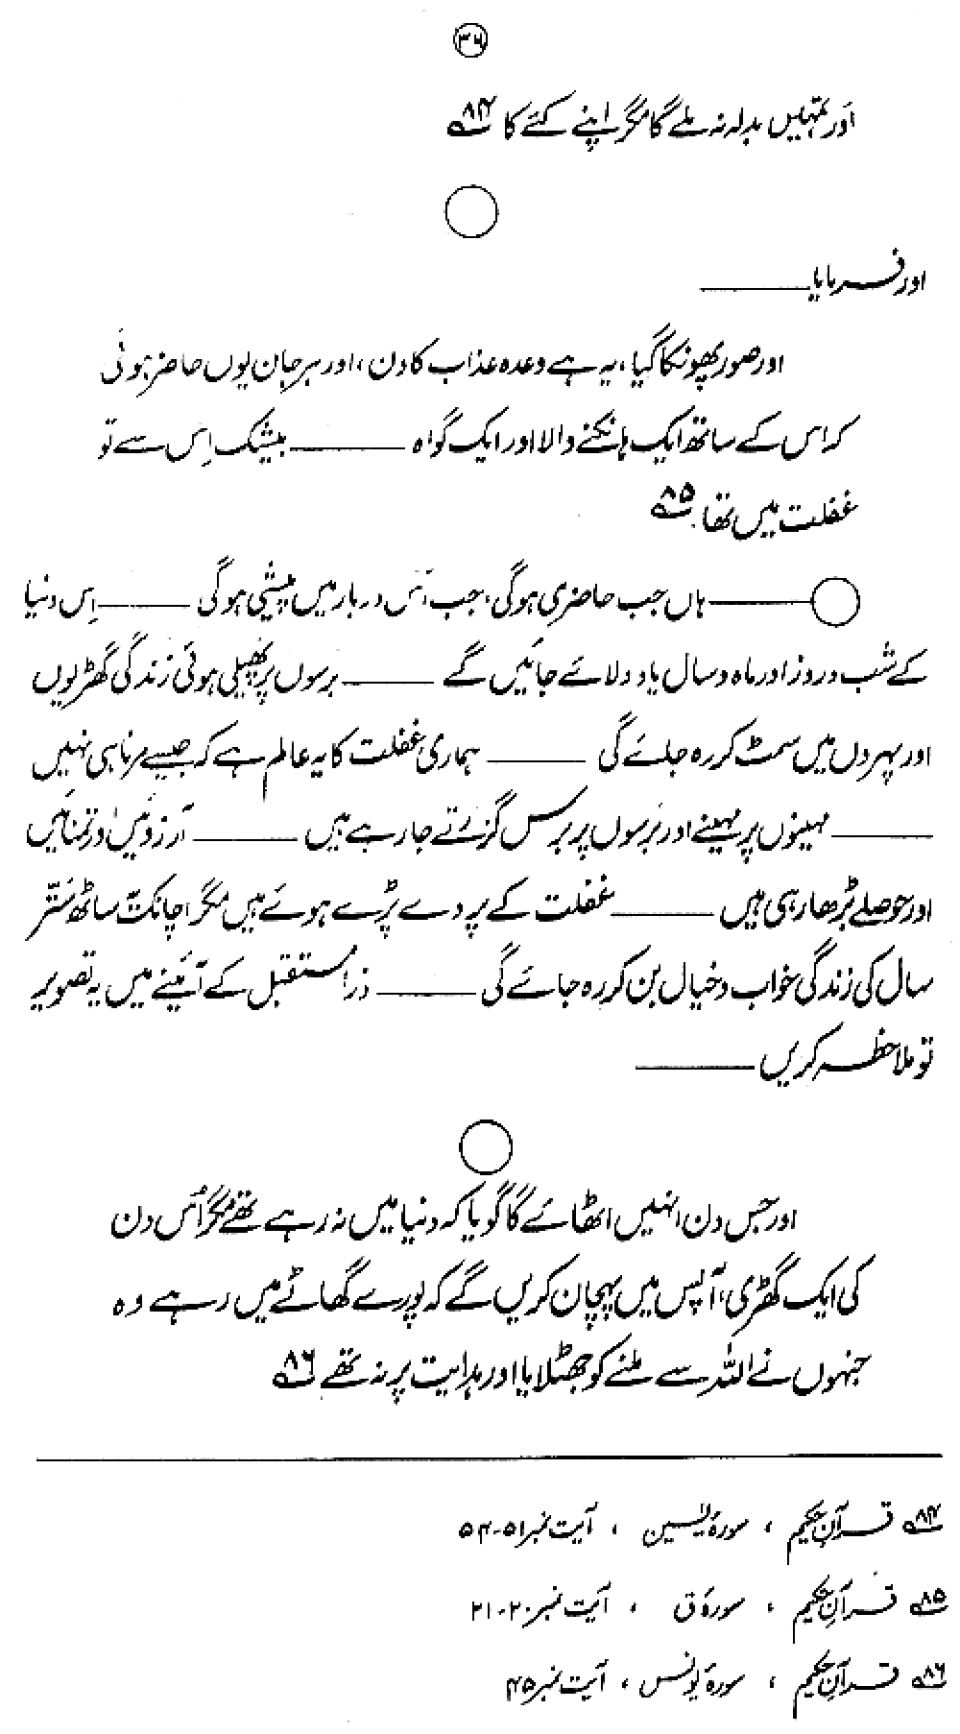 ۳۶
اور تمہیں بدلہ نہ ملے گا مگر اپنے کئے کا ۸۴؎
اور فرمایا ـــــــــ
اور صور پھونکا گیا، یہ ہے وعدہ عذاب کا دن، اور ہر جان یوں حاضر ہوئی
کہ اس کے ساتھ ایک ہانکنے والا اور ایک گواہ ـــــــــ بیشک اِس سے تو
غفلت میں تھا۔ ۸۵؎
ـــــــــ ہاں جب حاضری ہوگی، جب اُس دربار میں پیشی ہوگی ـــــــــ اِس دنیا
کے شب و روز اور ماہ و سال یاد دلائے جائیں گے ـــــــــ برسوں پر پھیلی ہوئی زندگی گھڑیوں
اور پہروں میں سمٹ کر رہ جائے گی ـــــــــ ہماری غفلت کا یہ عالم ہے کہ جیسے مرنا ہی نہیں
ـــــــــ مہینوں پر مہینے اور برسوں پر برس گزرتے جا رہے ہیں ـــــــــ آرزوئیں اور تمنائیں
اور حوصلے بڑھا رہی ہیں ـــــــــ غفلت کے پردے پڑے ہوئے ہیں مگر اچانک ساٹھ ستّر
سال کی زندگی خواب و خیال بن کر رہ جائے گی ـــــــــ ذرا مستقبل کے آئینے میں یہ تصویر
تو ملاحظہ کریں ـــــــــ
اور جس دن انہیں اٹھائے گا گویا کہ دنیا میں نہ رہے تھے مگر اُس دن
کی ایک گھڑی، آپس میں پہچان کریں گے کہ پورے گھاٹے میں رہے وہ
جنہوں نے اللہ سے ملنے کو جھٹلایا اور ہدایت پر نہ تھے ۸۶؎
۸۴؎ قرآن حکیم ، سورۂ یٰسین ، آیت نمبر ۵۱-۵۴
۸۵؎ قرآن حکیم ، سورۂ ق ، آیت نمبر ۲۰-۲۱
۸۶؎ قرآن حکیم ، سورۂ یونس ، آیت نمبر ۴۵